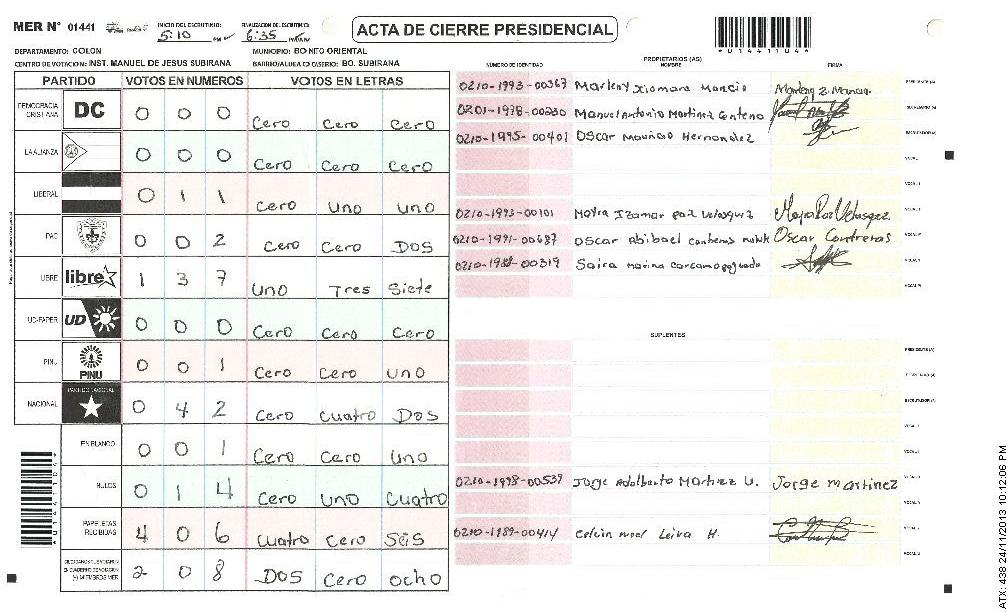 MER N° 01441
INICIO DEL ESCRUTINIO: 5:10 PM
FINALIZACION DEL ESCRUTINIO: 6:35 PM
ACTA DE CIERRE PRESIDENCIAL
01441104
DEPARTAMENTO: COLON
MUNICIPIO: BONITO ORIENTAL
CENTRO DE VOTACION: INST. MANUEL DE JESUS SUBIRANA
BARRIO/ALDEA O CASERIO: BO. SUBIRANA
PARTIDO VOTOS EN NUMEROS VOTOS EN LETRAS
DEMOCRACIA CRISTIANA DC 0 0 0 Cero Cero Cero
LA ALIANZA 0 0 0 Cero Cero Cero
LIBERAL 0 1 1 Cero Uno Uno
PAC 0 0 2 Cero Cero Dos
LIBRE libre 1 3 7 Uno Tres Siete
UD-FAPER UD 0 0 0 Cero Cero Cero
PINU PINU 0 0 1 Cero Cero Uno
NACIONAL PARTIDO NACIONAL 0 4 2 Cero Cuatro Dos
EN BLANCO 0 0 1 Cero Cero Uno
NULOS 0 1 4 Cero Uno Cuatro
PAPELETAS RECIBIDAS 4 0 6 Cuatro Cero Seis
2 0 8 Dos Cero ocho
PROPIETARIOS (AS)
NUMERO DE IDENTIDAD NOMBRE FIRMA
0210-1993-00367 Marleny Xiomara Mancia PRESIDENTE (A)
0201-1978-00230 Manuel Antonio Martinez Centeno SECRETARIO (A)
0210-1995-00401 Oscar Mauricio Hernandez ESCRUTADOR (A)
VOCAL I
VOCAL II
0210-1993-00101 Mayra Izamar paz Velasquez
0210-1991-00687 Oscar abibael contreras Oscar Contreras
0210-1988-00319 Saira marina
SUPLENTES
PRESIDENTE (A)
SECRETARIO (A)
ESCRUTADOR (A)
0210-1998-00537 Jorge Adalberto Martinez U. Jorge martinez
0210-1989-00414 Leiva H.
ATX: 438 24/11/2013 10:12:06 PM